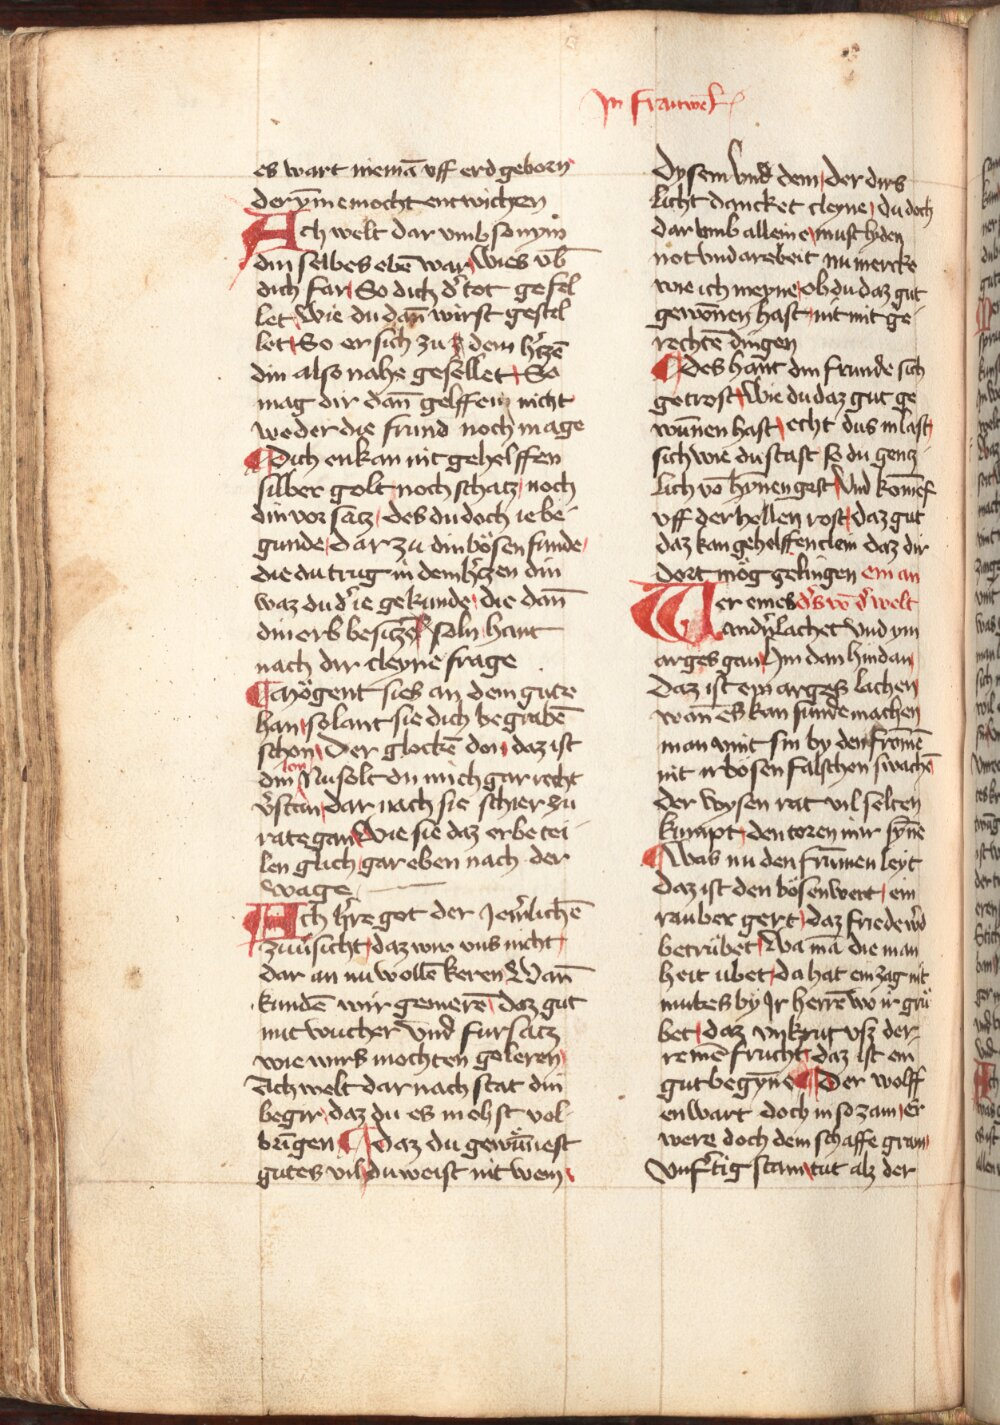 In frauwẽl
es wart niemã vff erd geborn
der ym e mocht entwichen
Ach welt dar vmb so nym
din selbes ebẽ war Wies vb̃
dich far So dich d̾ tot gesel
let Wie du dañ wirst gestil
let So er sich zu dem h̾tzẽ
din also nahe gesellet So
mag dir dañ gelffen nicht
weder die frund noch mage
Dich enkan nit gehelffen
silber golt noch schatz noch
din vor satz des du doch ie be-
gunde dar zu din bösen funde
die du trug in dem h̾tzen din
waz du d̾ ie gekunde die dañ
din erb besitzẽ soln hant
nach dir cleyne frage
Mögent sies an dem gute
han so lant sie dich begrabẽ
schon Der glockẽ don daz ist
din lon Nu solt du mich gar recht
v̾stan dar nach sie schier zu
rate gan Wie sie daz erbe tei-
len glich gar eben nach der
wage
Ach h̾re got der Jem̾lichẽ
zuu̾sicht daz wir vns nicht
dar an nu wollẽ keren Wañ
kundẽ wir gemerẽ daz gut
mit wucher vnd fursatz
wie wirs mochten geleren
Ach welt dar nach stat din
begir daz du es mehst vol-
bringen Daz du gewũnest
gutes vil du weist nit wem
Dysem vnd dem der dirs
licht dancket cleyne du doch
dar vmb alleine must lyden
not vnd arebeit nu mercke
wie ich meyne ob du daz gut
gewonnen hast nit mit ge-
rechtẽ dingen
Des hant din frunde sich
getrost Wie du daz gut ge
wũnen hast echt dus in last
sich wie du stast so du gentz-
lich võ hynnen gest Vnd komest
vff der hellen rost daz gut
daz kan gehelffen clein daz dir
dort mög gelingen ein an
Wer eines d̾s w̃ d̾ welt
and̾n lachet vnd ym
arges gan Im dan hindan
Daz ist ein arges lachen
wañ es kan sunde machen
man nint sin by den fromẽ
nit ir bösen falschen swachẽ
der wysen rat vil selten
knapt den toren mir synẽ
Was nu den frũmen leyt
daz ist den bösen wert ein
rauber gert daz friede w̾d
betrübet Wa mã die man
heit ubet da hat ein zag nit
mutes by Ir herrẽ wo ir grü
bet daz vnkrut vsz der
reinẽ frucht daz ist ein
gut begyñe Der wolff
en wart doch in so zam Er
were doch dem schaffe gram
Vnf̾tig stam tut alz der